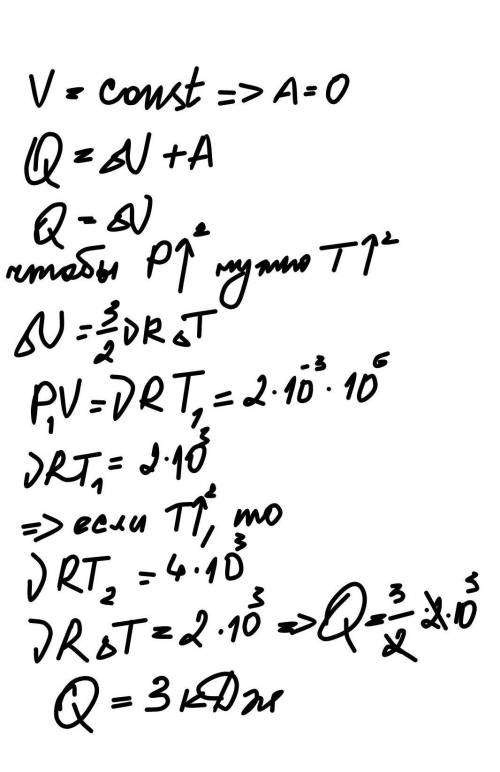 V = const => A = 0
Q = ΔU + A
Q = ΔU
чтобы P↑² нужно T↑²
ΔU = 3/2 νRΔT
P₁V = νRT₁ = 2·10⁻³·10⁶
νRT₁ = 2·10³
=> если T↑², то
νRT₂ = 4·10³
νRΔT = 2·10³ => Q = 3/2·2·10³
Q = 3 кДж